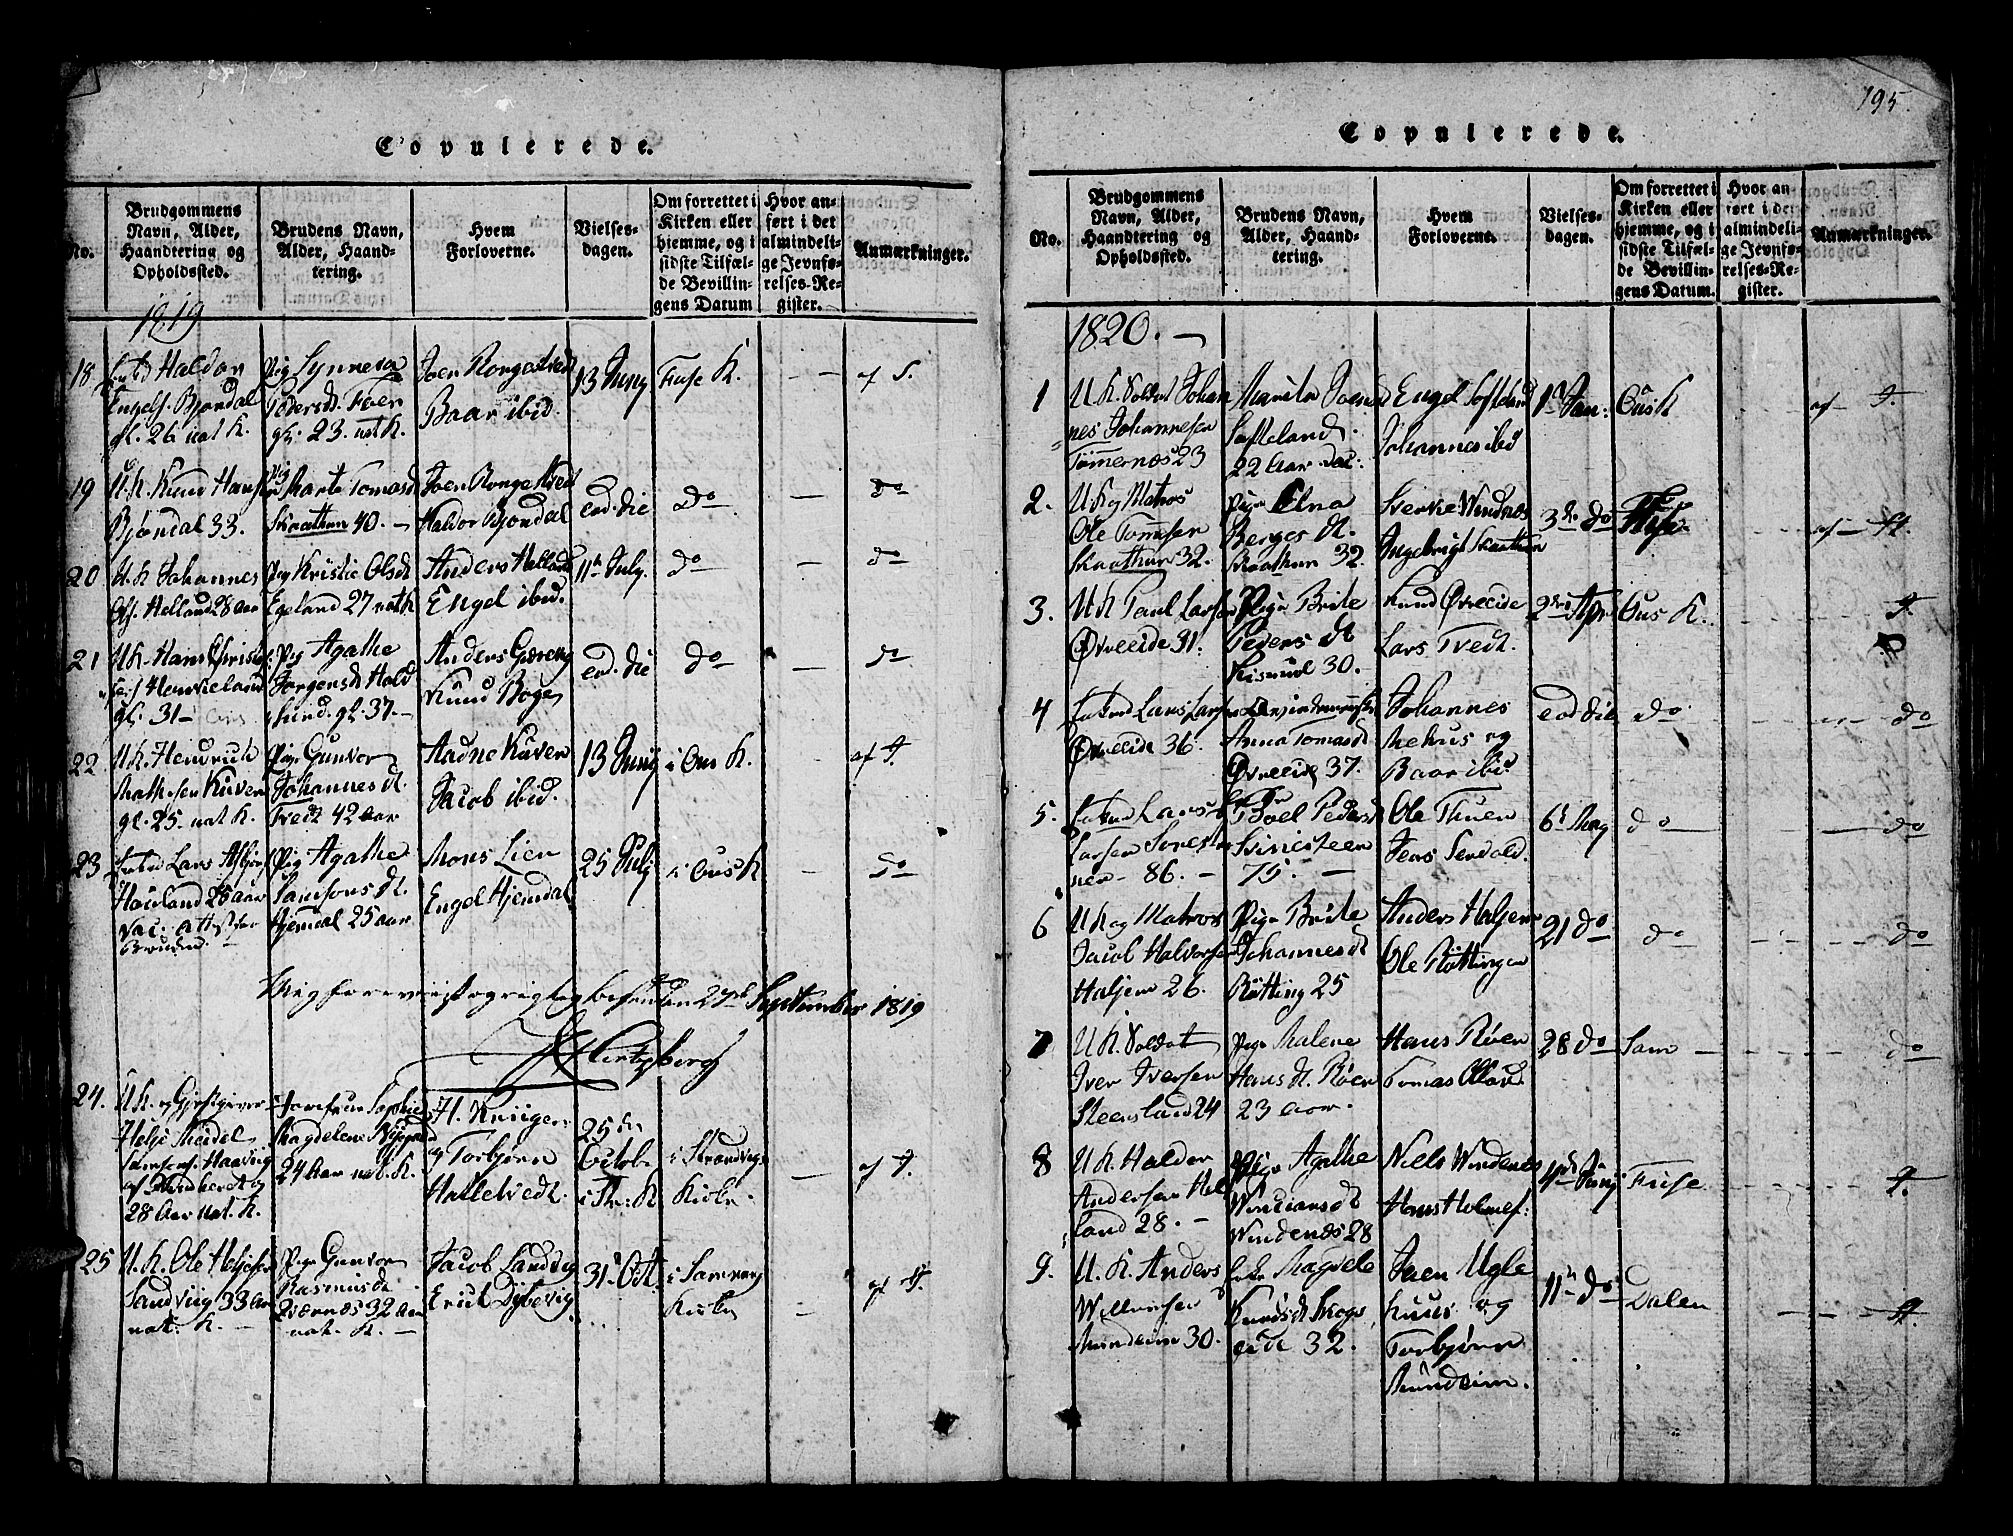 195
Copulerede.
No.
Brudgommens
Navn, Alder,
Haandtering og
Opholdssted.
Brudens Navn,
Alder, Haand-
tering.
Hvem
Forloverne.
Vielses-
dagen.
Om forrettet i
Kirken eller
hjemme, og i
sidste Tilfæl-
de Bevillin-
gens Datum
Hvor an-
ført i det
almindeli-
ge Jevnfø-
relses-Re-
gister.
Anmærkninger.
1819
18
Haldor
Engels. Bjøndal
gl. 26 nat K.
Pig Synneva
Peders d. Fuse
gl. 23. nat K.
Joen Rongestved
Baar ibid.
13 Juny
Fuse K.
af S.
19
U. K. Knud Hansen
Bjøndal 33.
Pig Marte Tomasd
Skaathun 40.
Joen Rongestved
Haldor Bjøndal
eod. die
do
do
20
U. K Johannes
Ols. Helland 28 aar
Pig Kristie Olsdt
Egeland 27 nat K
Anders Helland
Engel ibid.
11te July.
do
do
21
U. K. Hans Christ
gl. 31
Pig Agathe
Jørgensdt Hald
hind. gl. 37.
Anders Gjæreng
Knud Boge
eod. die
do
do
22
U. K. Hendrick
Mathisen Kuven
gl. 25. nat K.
Pige Gunvor
Johannes dt.
Tvedt 42 aar
Aadne Kuven
Jacob ibid.
13 Juny
i Ous K.
af S.
23
Lars
Hauland 28 aar
Vac. Attest for
Bruden.
Pig Agathe
Samsons dt.
Hjemdal 25 aar
Mons Lien
Engel Hjemdal
25 July
i Ous K
do
27de September 1819
Hertzberg
24.
U. K. og Gjestgiver
Helje Meidel
28 Aar nat. K.
Jomfrue Sophie
Magdelene
24 Aar nat. K.
H. Krüger
og Torbjørn
Hatletvedt.
25de
Octob.
i Str. K
i Strandvigs
Kirke.
af S.
25
U. K. Ole Heljesen
Sandviig 33 aar
nat. K.
Pige Gunvor
Rasmusdt
Qværnæs 32 aar
nat. K.
Jacob Sandvig
Erick Dybevig
31. Oct.
i Samnang
Kirke
af S.
Copulerede.
No.
Brudgommens
Navn, Alder,
Haandtering og
Opholdssted.
Brudens Navn,
Alder, Haand-
tering.
Hvem
Forloverne.
Vielses-
dagen.
Om forrettet i
Kirken eller
hjemme, og i
sidste Tilfæl-
de Bevillin-
gens Datum.
Hvor an-
ført i det
almindeli-
ge Jevnfø-
relses-Re-
gister.
Anmærkninger.
1820.
1
U. K. Soldat Johan
nes Johannesen
Tømernæs 23
Marita Joensd
Softeland
22 Aar vac:
Engel Softeland
Johannes ibid
1ste Jan:
Ous K
af S.
2.
U. K og Matros
Ole Tomesen
Skaathun 32.
Pige Elna
Berges dt.
Skaathun 32.
Sverke Windnes
Ingebrigt Skaathun
3de do
Fuse
af H.
3.
U K Paul Larsen
Øvreeide 31.
Pige Brite
Peders dt
30.
Knud Øvreeide
Lars Tvedt.
2den Apr
Ous K.
S.
4
Enkmd Lars Larsen
Øvreeide 36.
Anna Tomasd
Øvreeide 37.
Johannes
Mehus og
Baar ibid
eod die
do
do
5.
Enkmd Lars
Larsen
86.
Boel Pedersd
Svinesteen
75.
Ole Thuen
Jens Sendald.
6te May
do
do
6
U K og Matros
Jacob Halvorsen
Haljem 26.
Pige Brite
Johannes dt
Røtting 25
Anders Haljem
Ole Røttingen
21 do
do
do
7
U K. Soldat
Iver Iversen
Steensland 24
Pige Malene
Hans dt. Røen
23 aar.
Hans Røen
Tomas
28 do
Sam
do
8
U K. Haldor
Andersen Hel
land 28.
Pige Agathe
Windenæs 28
Niels Windenæs
Hans Holmef:
4de Juny
Fuse
S.
9.
U. K. Anders
Willumsen
Mundeim 30.
Enke Magdele
Knudsdt Skogs
eide 32.
Joen Ugle
huus og
Torbjørn
Mundeim.
11te do
Dalen
H.